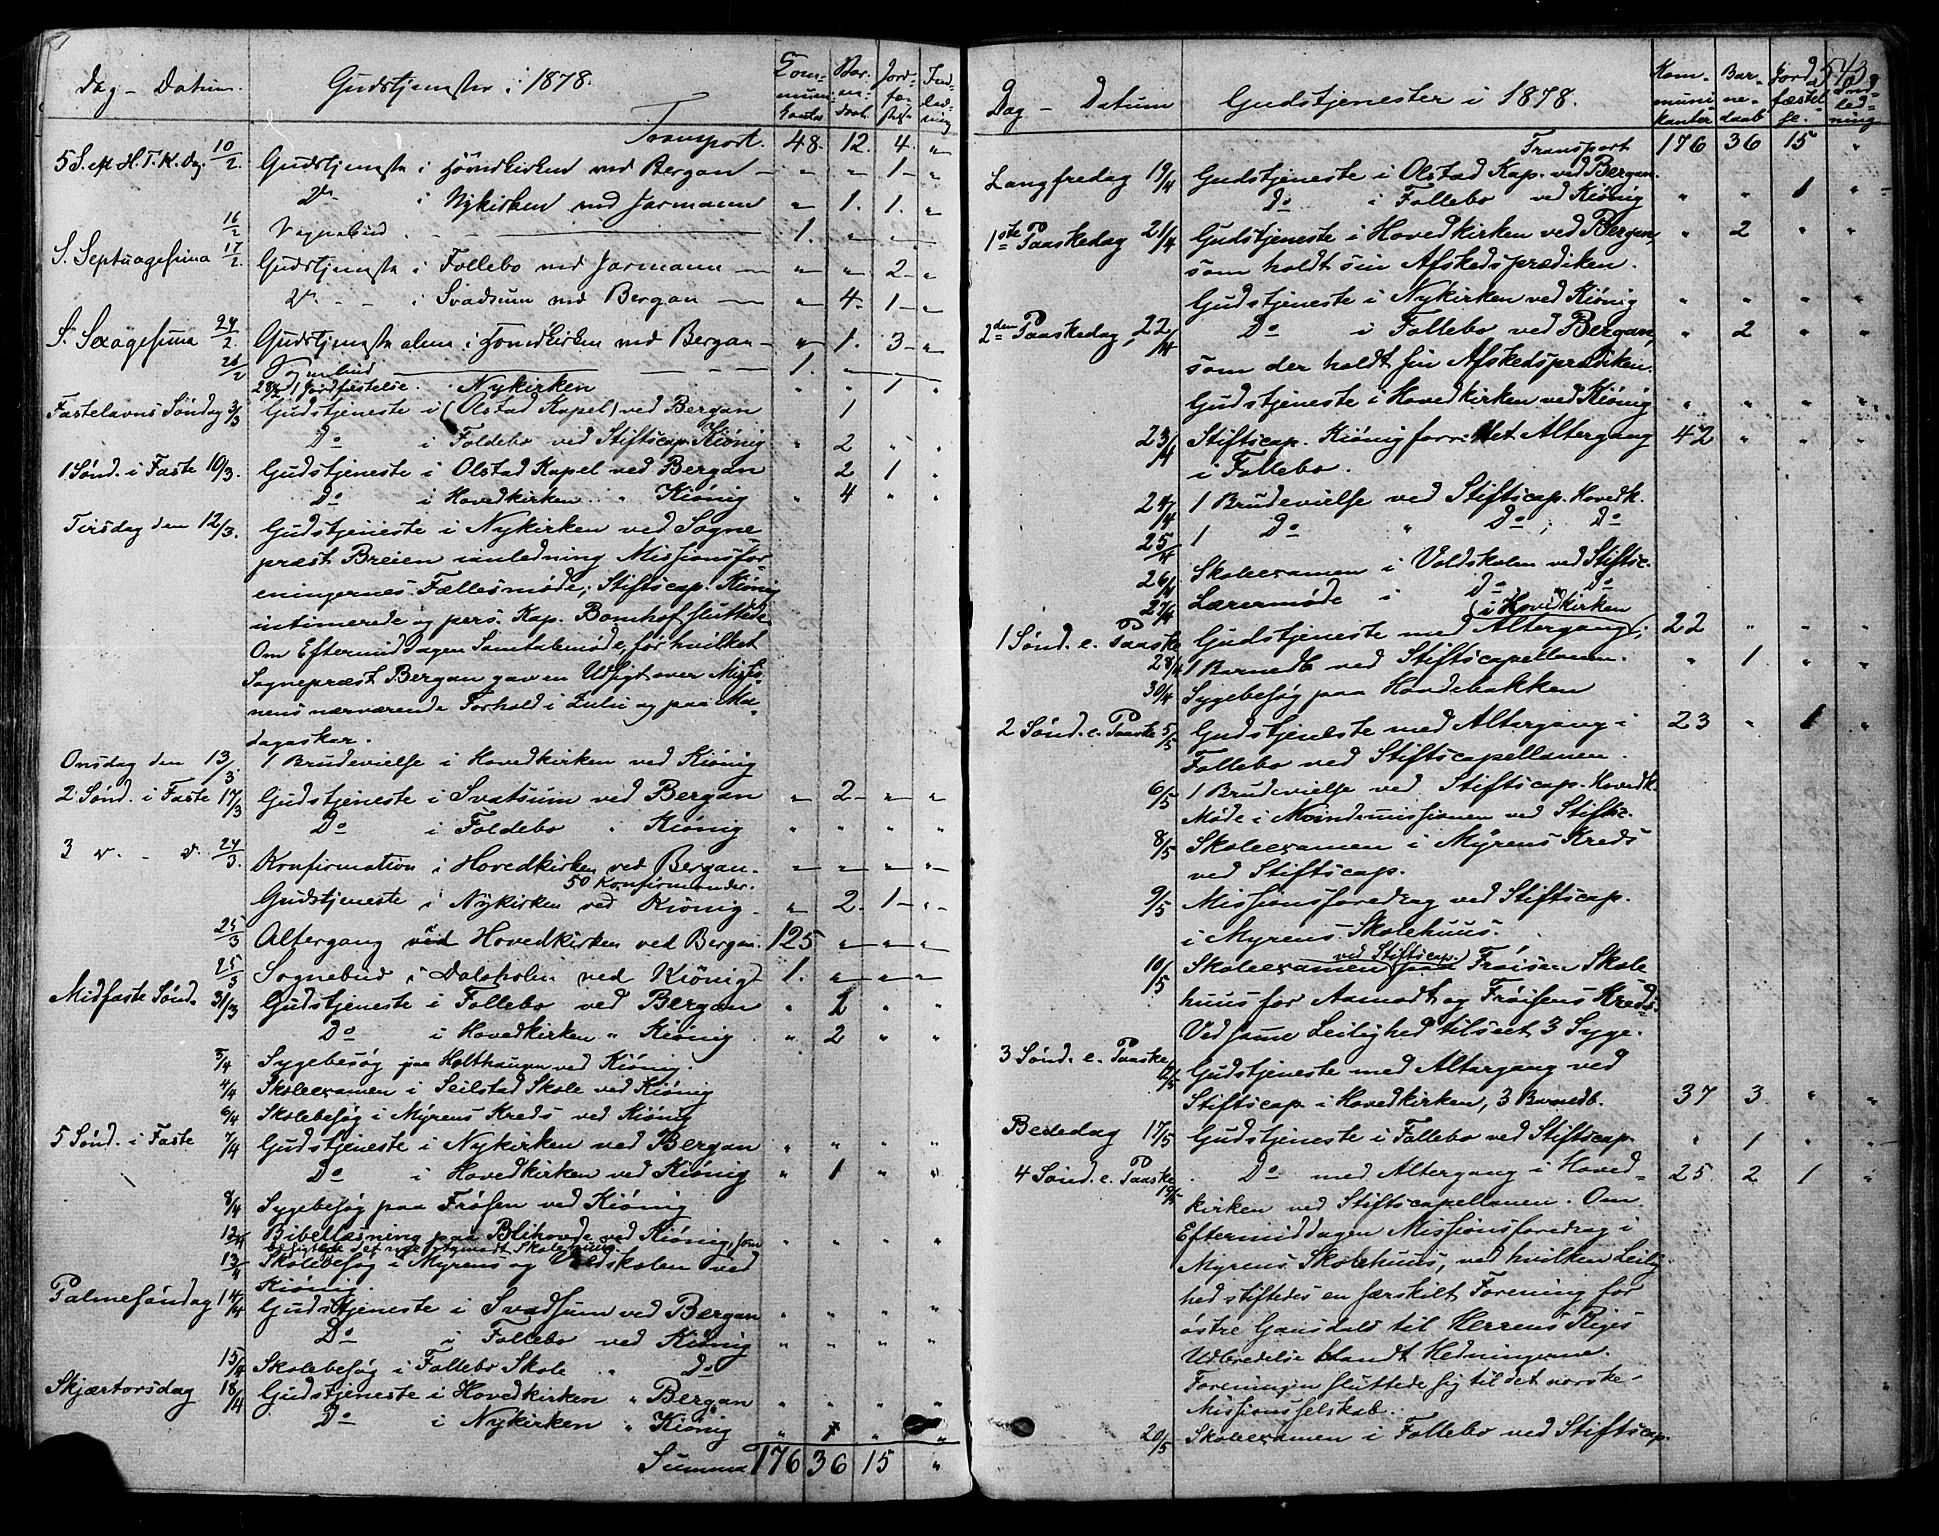 Dag – Datum. Gudstjenester i 1878. Com- Bar- Jord- Ind-
muni- ne- fæ- led-
kanter daab stelse ning
Transport. 48. 12. 4. "
5 S. eft H. T. K. Dag. 10/2. Gudstjeneste i Hovedkirken ved Bergan – " – " 1 – "
Do i Nykirken ved Jarmann " 1. 1. "
16/2 Sognebud. 1. " " "
S. Septuagesima 17/2. Gudstjeneste i Follebo ved Jarmann – " – " 2 – "
Do – – i Svadsum ved Bergan – " – 4 – 1 – "
S. Sexagesima 24/2 Gudstjeneste alene i Hovedkirken ved Bergan – " 1. 3 – "
26/2 Sognebud 1. " "
28/2 1 Jordfæstelse. Nykirken " " 1 "
Fastelavns Søndag 3/3 Gudstjeneste i (Olstad Kapel) ved Bergan 1
Do i Foldebo ved Stiftscap. Kiønig " 2 " "
1 Sønd. i Faste 10/3. Gudstjeneste i Olstad Kapel ved Bergan 2 1 "
Do i Hovedkirken " Kiønig " 4 " "
Tirsdag den 12/3. Gudstjeneste i Nykirken ved Sogne-
præst Breien i anledning Missionsfor-
eningernes Fællesmøde; Stiftscap. Kiønig
intimerede og pers. Kap. Bomhof sluttede.
Om Eftermiddagen Samtalemøde, før hvilket
Sognepræst Bergan gav en Udsigt over Missio-
nens nærværende Forhold i Zulu og paa Ma-
dagaskar.
Onsdag den 13/3. 1 Brudevielse i Hovedkirken ved Kiønig
2 Sønd. i Faste 17/3 Gudstjeneste i Svatsum ved Bergan " 2 – " "
Do i Foldebo " Kiønig " " " "
3 " – " 24/3. Konfirmation i Hovedkirken ved Bergan. – " – " – "
50 Konfirmander.
Gudstjeneste i Nykirken ved Kiønig – " 2. 1 – "
25/3 Altergang ved Hovedkirken ved Bergan. 125 " " "
25/3 Sognebud i Dalsholen ved Kiønig 1. " " "
Midfaste Sønd. 31/3 Gudstjeneste i Follebo ved Bergan " 2 " "
Do i Hovedkirken " Kiønig " 2 " "
3/4 Sygebesøg paa Holthaugen ved Kiønig.
4/4 Skoleexamen i Seilstad Skole ved Kiønig
6/4 Skolebesøg i Myrens Kreds ved Kiønig
5 Sønd. i Faste 7/4 Gudstjeneste i Nykirken ved Bergan " " " "
Do i Hovedkirken ved Kiønig " 1 " "
8/4 Sygebesøg paa Frøsen ved Kiønig
12/4 Bibellæsning paa Blihovde ved Kiønig, som " " " "
besigtede det Skolehuus.
13/4 Skolebesøg i Myrens og Voldskolen ved
Kiønig.
Palmesøndag 14/4 Gudstjeneste i Svadsum ved Bergan " " " "
Do i Follebo ved Kiønig " " " "
15/4 Skolebesøg i Follebo Skole " Do
Skjærtorsdag 18/4 Gudstjeneste i Hovedkirken " Bergan " " " "
Do i Nykirken " Kiønig " " "
Summa 176 36 15 "
543
Dag – Datum Gudstjenester i 1878. Kom- Bar- Jord- Ind-
muni- ne- fæstel- led-
kanter daab se. ning
Transport 176 36 15 "
Langfredag 19/4 Gudstjeneste i Olstad Kap. ved Bergan.
Do i Follebo ved Kiønig " " 1 "
1ste Paaskedag 21/4 Gudstjeneste i Hovedkirken ved Bergan, " 2 " "
som holdt sin Afskedsprædiken.
Gudstjeneste i Nykirken ved Kiønig " " " "
2den Paaskedag, 22/4 Do i Follebo ved Bergan, " 2 " "
som der holdt sin Afskedsprædiken.
Gudstjeneste i Hovedkirken ved Kiønig " " " "
23/4 Stiftscap. Kiønig forrettet Altergang 42 " " "
i Follebo.
24/4 1 Brudevielse ved Stiftscap. Hovedk.
25/4 1 Do " Do; Do
26/4 Skoleexamen i Voldskolen ved Stiftsc.
27/4 Lærermøde i Do " Do
(i Hovedkirken
1 Sønd. e. Paaske Gudstjeneste med Altergang). 22 " " "
28/4 1 Barnedb ved Stiftscapellanen. " 1. " "
30/4 Sygebesøg paa Hovdebakken
2 Sønd. e. Paaske 5/5 Gudstjeneste med Altergang i 23 " 1 "
Follebo ved Stiftscapellanen.
6/5 1 Brudevielse ved Stiftscap. Hovedk.
Møde i Mandemissionen ved Stiftsc.
8/5 Skoleexamen i Myrens Kreds
ved Stiftscap.
9/5 Missionsforedrag ved Stiftscap.
i Myrens Skolehuus.
ved Stiftscap.
10/5 Skoleexamen paa Frøisen Skole
huus for Aamodt og Frøisens Kreds.
Ved samme Leilighed tilseet 3 Syge.
3 Sønd. e. Paaske 12/5 Gudstjeneste med Altergang ved
Stiftscap. i Hovedkirken, 3 Barnedb. 37 3. " "
Bededag 17/5 Gudstjeneste i Follebo ved Stiftscap. " 1 " "
4 Sønd. e. Paaske 19/5 Do med Altergang i Hoved- 25. 2 1 "
kirken ved Stiftscapellanen. Om
Eftermiddagen Missionsforedrag i
Myrens Skolehuus, ved hvilken Leilig-
hed stiftedes en særskilt Forening for
østre Gausdals til Herrens Riges
Udbredelse blandt Hedningerne.
Foreningen sluttede sig til det norske
Missionsselskab.
20/5 Skoleexamen i Follebo ved Stiftscap.